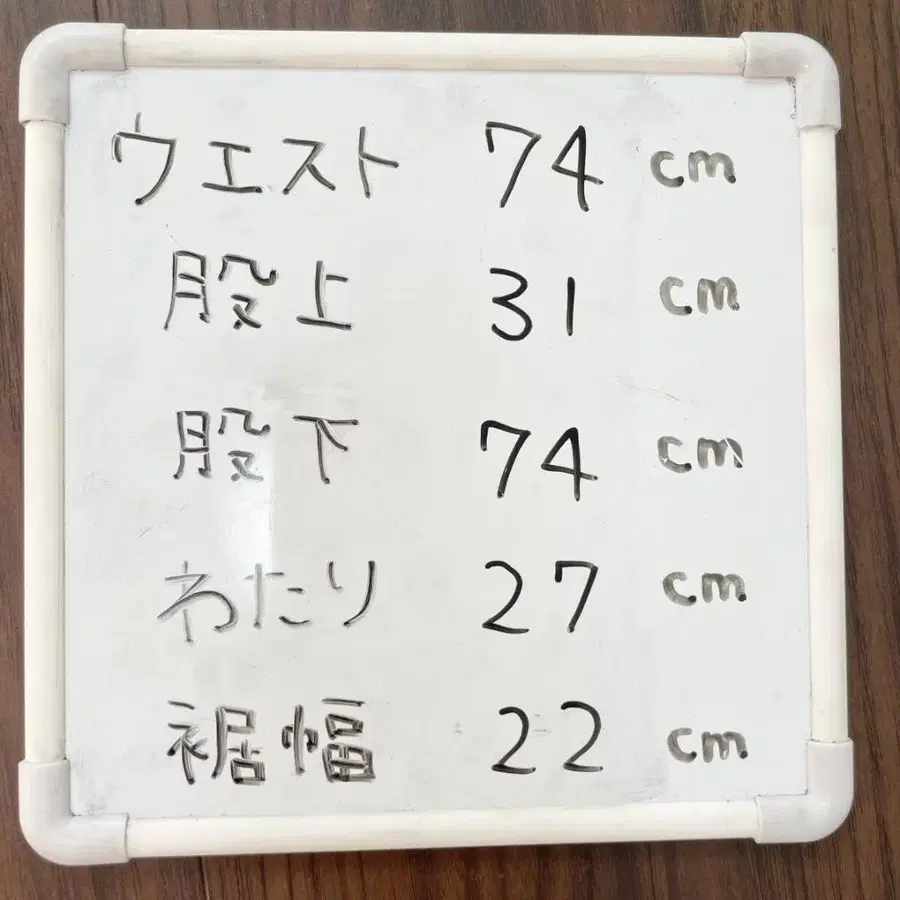 ウエスト 74 cm
股上 31 cm
股下 74 cm
わたり 27 cm
裾幅 22 cm